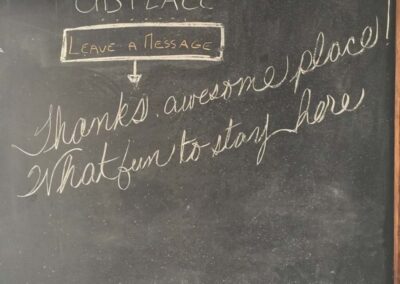 LEAVE A MESSAGE
Thanks. awesome place!
What fun to stay here